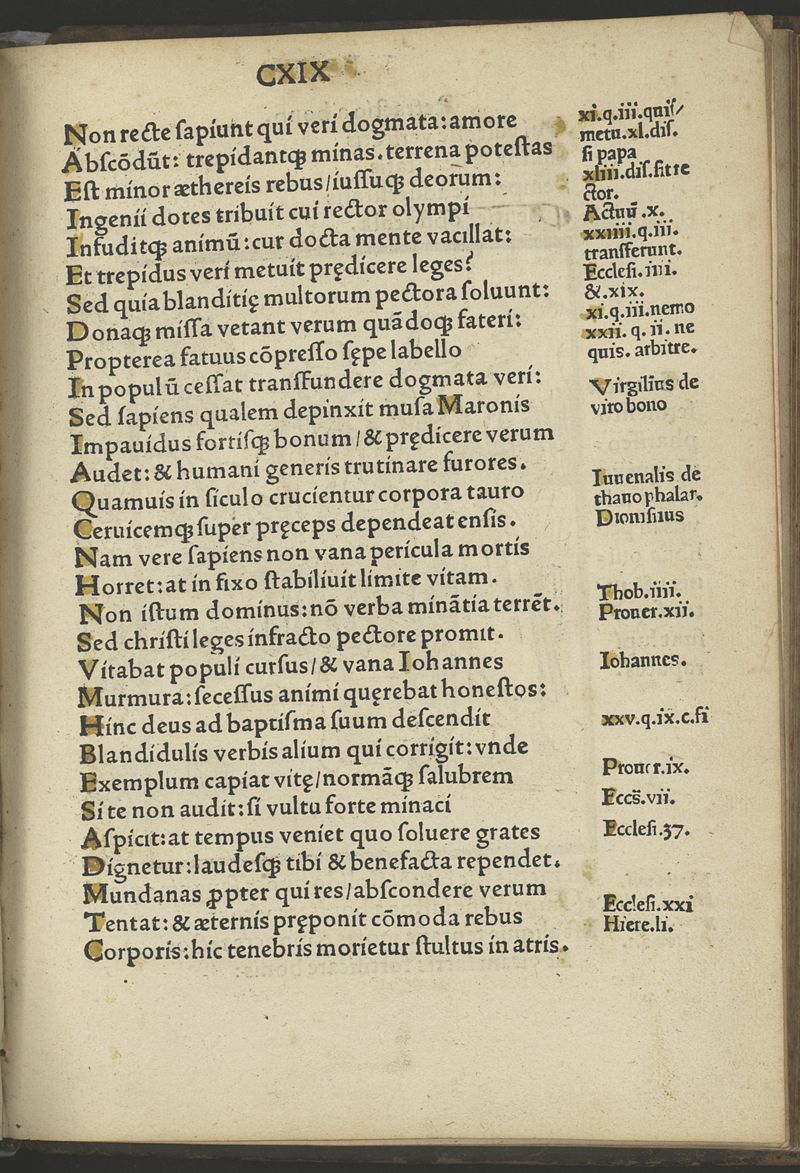 CXIX
Non recte ſapiunt qui veri dogmata: amore
Abſcōdūt: trepidantqꝫ minas. terrena poteſtas
Eſt minor æthereis rebus/iuſſuqꝫ deorum:
Ingenii dotes tribuit cui rector olympi
Infuditqꝫ animū: cur docta mente vacillat:
Et trepidus veri metuit prędicere leges?
Sed quia blanditię multorum pectora ſoluunt:
Donaqꝫ miſſa vetant verum quādoqꝫ fateri:
Propterea fatuus cōpreſſo ſępe labello
In populū ceſſat tranſfundere dogmata veri:
Sed ſapiens qualem depinxit muſa Maronis
Impauidus fortiſqꝫ bonum/& prędicere verum
Audet: & humani generis trutinare furores.
Quamuis in ſiculo crucientur corpora tauro
Ceruicemqꝫ ſuper pręceps dependeat enſis.
Nam vere ſapiens non vana pericula mortis
Horret: at in fixo ſtabiliuit limite vitam.
Non iſtum dominus: nō verba minātia terrēt.
Sed chriſti leges infracto pectore promit.
Vitabat populi curſus/& vana Iohannes
Murmura: ſeceſſus animi quęrebat honeſtos:
Hinc deus ad baptiſma ſuum deſcendit
Blandidulis verbis alium qui corrigit: vnde
Exemplum capiat vitę/normāqꝫ ſalubrem
Si te non audit: ſi vultu forte minaci
Aſpicit: at tempus veniet quo ſoluere grates
Dignetur: laudeſqꝫ tibi & benefacta rependet.
Mundanas ꝓpter qui res/abſcondere verum
Tentat: & æternis pręponit cōmoda rebus
Corporis: hic tenebris morietur ſtultus in atris.
xi.q.iii.quiſ/
metu.xl.diſ.
ſi papa
xliii.diſ.ſit re
ctor.
Actuū.x.
xxiiii.q.iii.
tranſferunt.
Eccleſi.iiii.
&.xix.
xi.q.iii.nemo
xxii. q. ii. ne
quis. arbitre.
Virgilius de
viro bono
Iuuenalis de
thauo phalar.
Dioniſius
Thob.iiii.
Prouer.xii.
Iohannes.
xxv.q.ix.c.ſi
Prouer.ix.
Eccs̄.vii.
Eccleſi.37.
Eccleſi.xxi
Hiere.li.